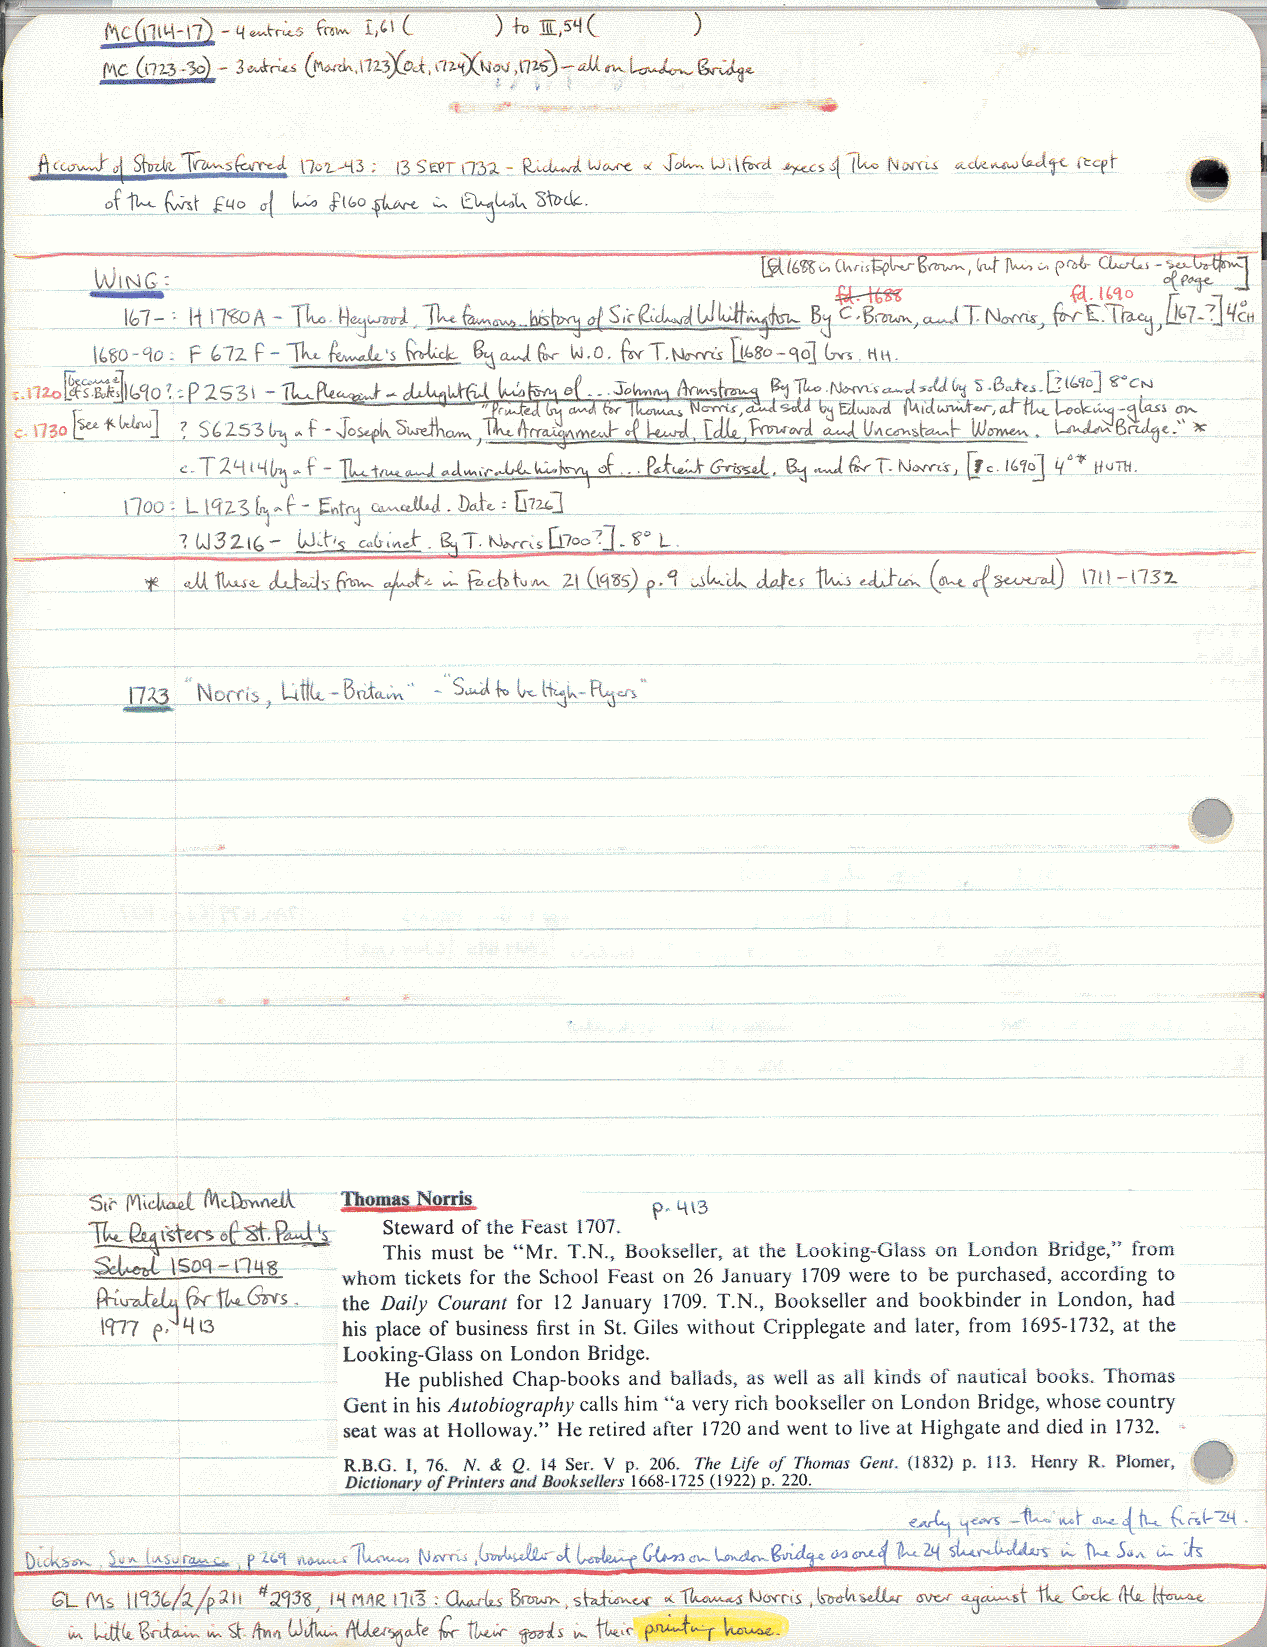 MC (1714-17) - 4 entries from I,61 ( ) to III,54 ( )
MC (1723-30) - 3 entries (March, 1723)(Oct, 1724)(Nov, 1725) - all on London Bridge
Account of Stock Transferred 1702-43: 13 SEPT 1732 - Richard Ware & John Wilford execs of Tho Norris acknowledge recpt
of the first £40 of his £160 share in English Stock.
[fd 1688 is Christopher Brown, but this is prob Charles - see bottom
of page]
WING:
fd. 1688 fd. 1690
167-: H1780A - Tho. Heywood, The famous history of Sir Richard Whittington By C. Brown, and T. Norris, for E. Tracy, [167-?] 4° CH
1680-90: F 672 F - The female's frolick By and for W.O. for T. Norris [1680-90] brs. HH.
c.1720 [because of S. Bates] 1690?: P2531 - The Pleasant & delightful history of ... Johnny Armstrong By Tho. Norris and sold by S. Bates. [?1690] 8° CN
"Printed by and for Thomas Norris, and sold by Edward Midwinter, at the Looking-glass on
c. 1730 [see * below] ? S6253 by & f - Joseph Swetnam, The Arraignment of Lewd, Idle, Froward and Unconstant Women. London Bridge." *
c. T2414 by & f - The true and admirable history of ... Patient Grissel. By and for T. Norris, [c. 1690] 4°* HUTH.
1700: L1923 by & f - Entry cancelled. Date: [1726]
? W3216 - Wit's cabinet. By T. Norris [1700?]. 8° L.
* all these details from quote in Factotum 21 (1985) p.9 which dates this edition (one of several) 1711-1732
1723 "Norris, Little-Britain" - "Said to be High-Flyers"
Sir Michael McDonnell
The Registers of St. Paul's
School 1509-1748
Privately for the Govs.
1977 p. 413
Thomas Norris
p. 413
Steward of the Feast 1707.
This must be “Mr. T.N., Bookseller, at the Looking-Glass on London Bridge,” from
whom tickets for the School Feast on 26 January 1709 were to be purchased, according to
the Daily Courant for 12 January 1709. T.N., Bookseller and bookbinder in London, had
his place of business first in St. Giles without Cripplegate and later, from 1695-1732, at the
Looking-Glass on London Bridge.
He published Chap-books and ballads, as well as all kinds of nautical books. Thomas
Gent in his Autobiography calls him “a very rich bookseller on London Bridge, whose country
seat was at Holloway.” He retired after 1720 and went to live at Highgate and died in 1732.
R.B.G. I, 76. N. & Q. 14 Ser. V p. 206. The Life of Thomas Gent. (1832) p. 113. Henry R. Plomer,
Dictionary of Printers and Booksellers 1668-1725 (1922) p. 220.
early years - tho' not one of the first 24.
Dickson, Sun Insurance, p 269 names Thomas Norris, bookseller at Looking Glass on London Bridge as one of the 24 shareholders in the Sun in its
GL Ms 11936/2/p211 #2938, 14 MAR 1713: Charles Brown, stationer & Thomas Norris, bookseller over against the Cock Ale House
in Little Britain in St. Ann Within Aldersgate for their goods in their printing house.